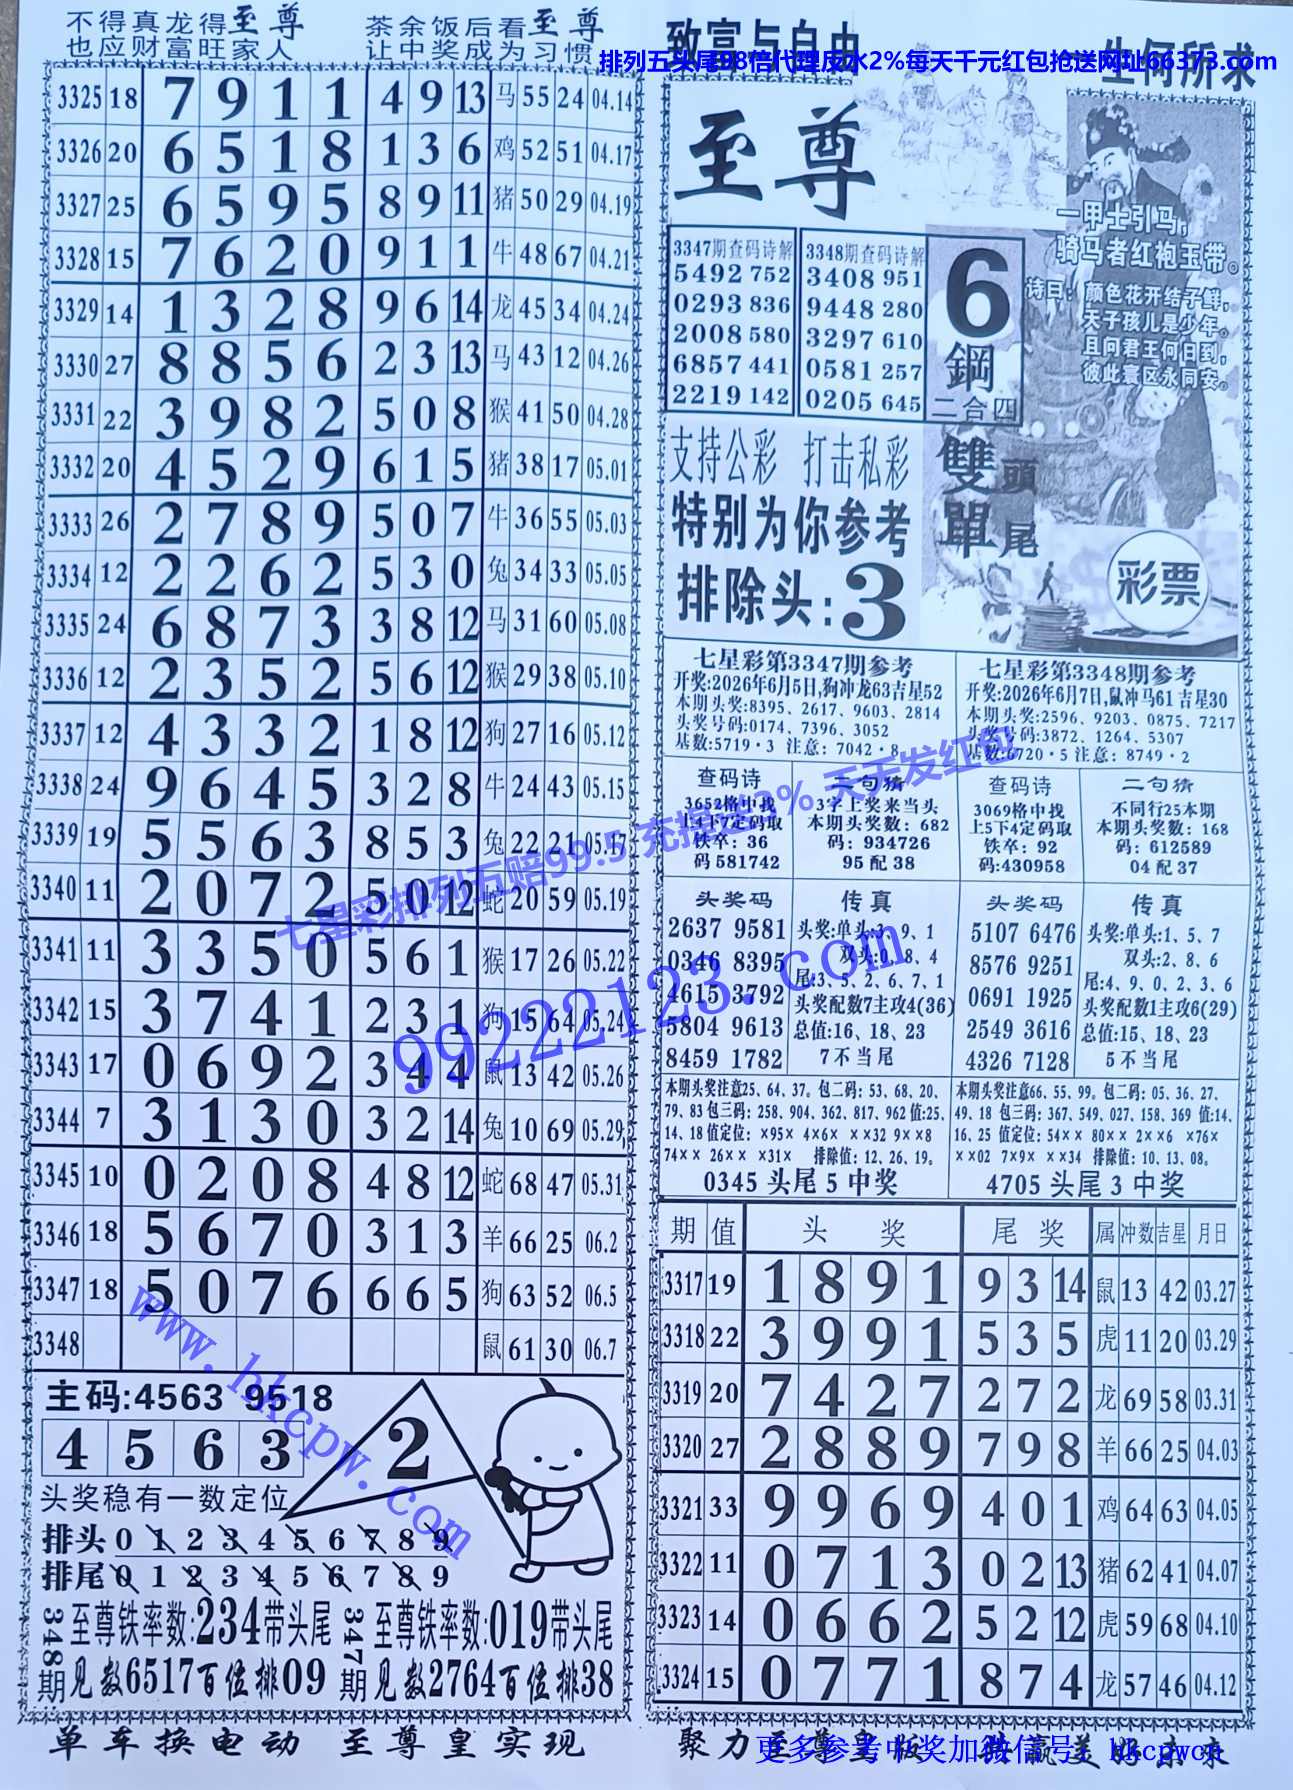 不得真龙得至尊
也应财富旺家人
茶余饭后看至尊
让中奖成为习惯
3325 18 7 9 1 1 4 9 13 马 55 24 04.14
3326 20 6 5 1 8 1 3 6 鸡 52 51 04.17
3327 25 6 5 9 5 8 9 11 猪 50 29 04.19
3328 15 7 6 2 0 9 1 1 牛 48 67 04.21
3329 14 1 3 2 8 9 6 14 龙 45 34 04.24
3330 27 8 8 5 6 2 3 13 马 43 12 04.26
3331 22 3 9 8 2 5 0 8 猴 41 50 04.28
3332 20 4 5 2 9 6 1 5 猪 38 17 05.01
3333 26 2 7 8 9 5 0 7 牛 36 55 05.03
3334 12 2 2 6 2 5 3 0 兔 34 33 05.05
3335 24 6 8 7 3 3 8 12 马 31 60 05.08
3336 12 2 3 5 2 5 6 12 猴 29 38 05.10
3337 12 4 3 3 2 1 8 12 狗 27 16 05.12
3338 24 9 6 4 5 3 2 8 牛 24 43 05.15
3339 19 5 5 6 3 8 5 3 兔 22 21 05.17
3340 11 2 0 7 2 5 0 12 蛇 20 59 05.19
3341 11 3 3 5 0 5 6 1 猴 17 26 05.22
3342 15 3 7 4 1 2 3 1 狗 15 64 05.24
3343 17 0 6 9 2 3 4 4 鼠 13 42 05.26
3344 7 3 1 3 0 3 2 14 兔 10 69 05.29
3345 10 0 2 0 8 4 8 12 蛇 68 47 05.31
3346 18 5 6 7 0 3 1 3 羊 66 25 06.2
3347 18 5 0 7 6 6 6 5 狗 63 52 06.5
3348 鼠 61 30 06.7
主码:4563 9518
4 5 6 3
2
头奖稳有一数定位
排头 0 1 2 3 4 5 6 7 8 9
排尾 0 1 2 3 4 5 6 7 8 9
348期 至尊铁率数:234带头尾
见数6517百位排09
347期 至尊铁率数:019带头尾
见数2764百位排38
单车换电动 至尊皇实现
致富与自由
生何所求
排列五头尾98倍代理反水2%每天千元红包抢送网址66373.com
至尊
一甲士引马,
骑马者红袍玉带。
诗曰: 颜色花开结子鲜,
天子孩儿是少年。
且问君王何日到,
彼此寰区永同安。
3347期查码诗解
5492 752
0293 836
2008 580
6857 441
2219 142
3348期查码诗解
3408 951
9448 280
3297 610
0581 257
0205 645
6
鋼
二合四
雙頭
單尾
支持公彩 打击私彩
特别为你参考
排除头:3
彩票
七星彩第3347期参考
开奖:2026年6月5日,狗冲龙63吉星52
本期头奖:8395、2617、9603、2814
头奖号码:0174、7396、3052
基数:5719·3 注意: 7042·8
七星彩第3348期参考
开奖:2026年6月7日,鼠冲马61 吉星30
本期头奖:2596、9203、0875、7217
头奖号码:3872、1264、5307
基数:6720·5 注意: 8749·2
查码诗
3652格中找
上4下7定码取
铁卒: 36
码 581742
二句猜
3字上奖来当头
本期头奖数: 682
码: 934726
95 配 38
查码诗
3069格中找
上5下4定码取
铁卒: 92
码:430958
二句猜
不同行25本期
本期头奖数: 168
码: 612589
04 配 37
头奖码
2637 9581
0346 8395
4615 3792
5804 9613
8459 1782
传真
头奖:单头:3、9、1
双头:0、8、4
尾:3、5、2、6、7、1
头奖配数7主攻4(36)
总值:16、18、23
7 不当尾
头奖码
5107 6476
8576 9251
0691 1925
2549 3616
4326 7128
传真
头奖:单头:1、5、7
双头:2、8、6
尾:4、9、0、2、3、6
头奖配数1主攻6(29)
总值:15、18、23
5 不当尾
本期头奖注意25、64、37。包二码: 53、68、20、
79、83 包三码: 258、904、362、817、962 值:25、
14、18 值定位: ×95× 4×6× ××32 9××8
74×× 26×× ×31× 排除值: 12、26、19。
0345 头尾 5 中奖
本期头奖注意66、55、99。包二码: 05、36、27、
49、18 包三码: 367、549、027、158、369 值:14、
16、25 值定位: 54×× 80×× 2××6 ×76×
××02 7×9× ××34 排除值: 10、13、08。
4705 头尾 3 中奖
期 值 头奖 尾奖 属 冲数 吉星 月日
3317 19 1 8 9 1 9 3 14 鼠 13 42 03.27
3318 22 3 9 9 1 5 3 5 虎 11 20 03.29
3319 20 7 4 2 7 2 7 2 龙 69 58 03.31
3320 27 2 8 8 9 7 9 8 羊 66 25 04.03
3321 33 9 9 6 9 4 0 1 鸡 64 63 04.05
3322 11 0 7 1 3 0 2 13 猪 62 41 04.07
3323 14 0 6 6 2 5 2 12 虎 59 68 04.10
3324 15 0 7 7 1 8 7 4 龙 57 46 04.12
聚力至尊皇版
更多参考中奖加微信号: hkcpwcn
七星彩排列五赔99.5 充提送3% 天天发红包
99222123.com
www.hkcpw.com